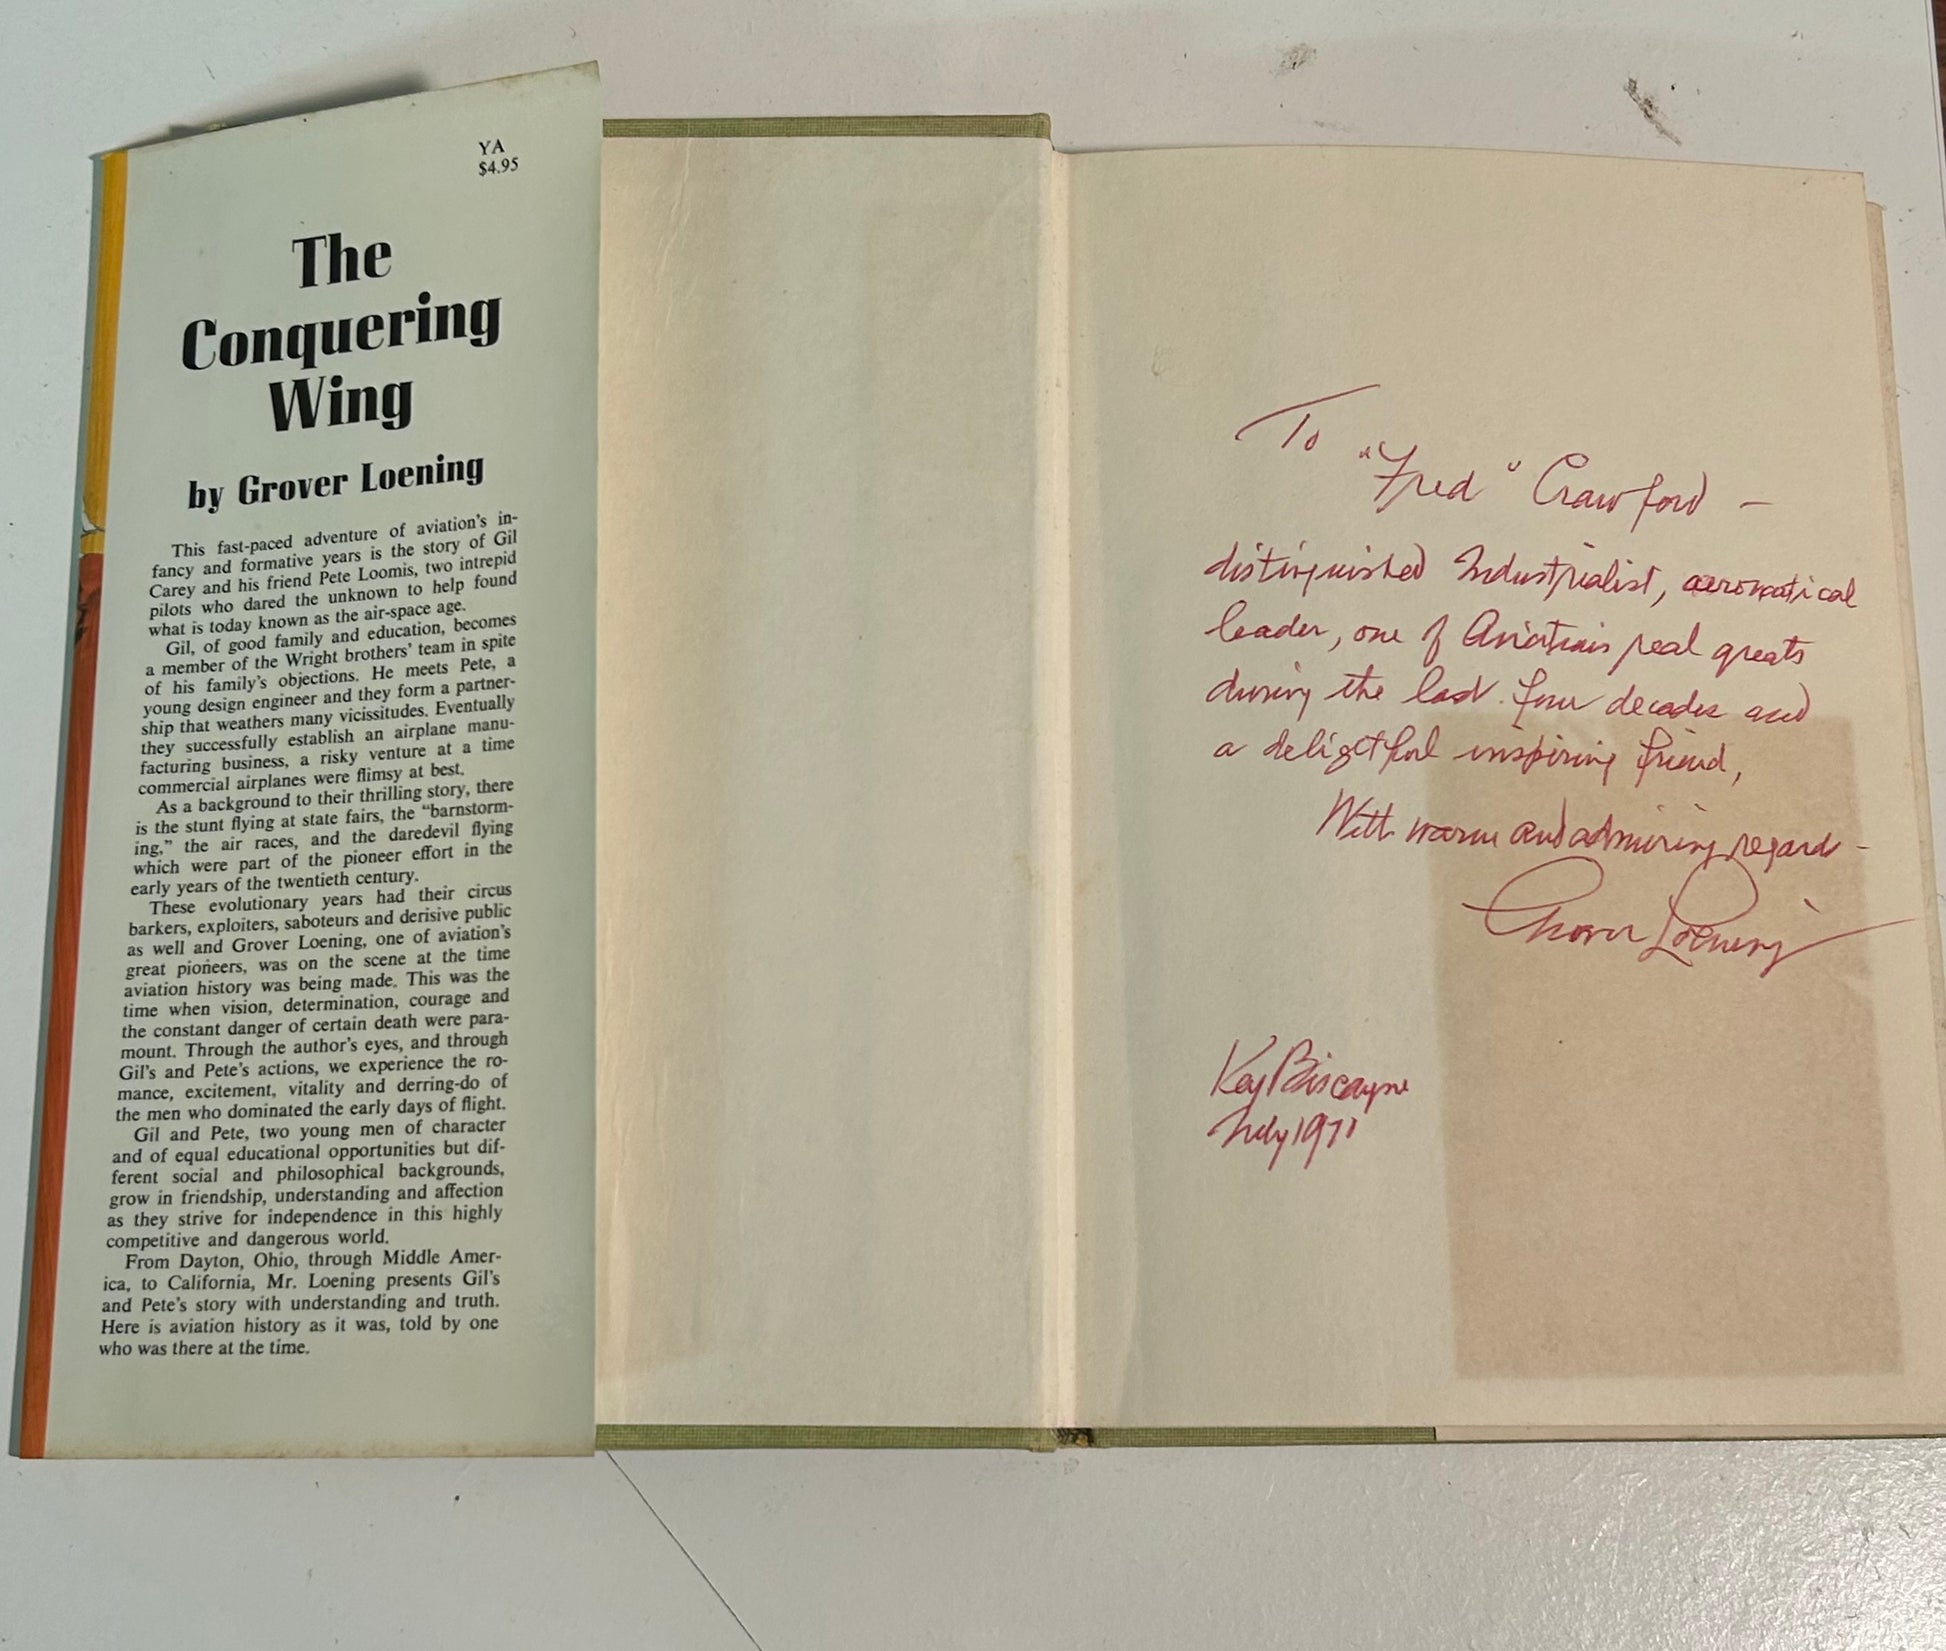 YA
$4.95
The
Conquering
Wing
by Grover Loening
This fast-paced adventure of aviation's in-
fancy and formative years is the story of Gil
Carey and his friend Pete Loomis, two intrepid
pilots who dared the unknown to help found
what is today known as the air-space age.
Gil, of good family and education, becomes
a member of the Wright brothers' team in spite
of his family's objections. He meets Pete, a
young design engineer and they form a partner-
ship that weathers many vicissitudes. Eventually
they successfully establish an airplane manu-
facturing business, a risky venture at a time
commercial airplanes were flimsy at best.
As a background to their thrilling story, there
is the stunt flying at state fairs, the "barnstorm-
ing," the air races, and the daredevil flying
which were part of the pioneer effort in the
early years of the twentieth century.
These evolutionary years had their circus
barkers, exploiters, saboteurs and derisive public
as well and Grover Loening, one of aviation's
great pioneers, was on the scene at the time
aviation history was being made. This was the
time when vision, determination, courage and
the constant danger of certain death were para-
mount. Through the author's eyes, and through
Gil's and Pete's actions, we experience the ro-
mance, excitement, vitality and derring-do of
the men who dominated the early days of flight.
Gil and Pete, two young men of character
and of equal educational opportunities but dif-
ferent social and philosophical backgrounds,
grow in friendship, understanding and affection
as they strive for independence in this highly
competitive and dangerous world.
From Dayton, Ohio, through Middle Amer-
ica, to California, Mr. Loening presents Gil's
and Pete's story with understanding and truth.
Here is aviation history as it was, told by one
who was there at the time.
To
"Fred" Crawford —
distinguished Industrialist, aeronautical
leader, one of Aviation's real greats
during the last four decades and
a delightful inspiring friend,
With warm and admiring regard -
Grover Loening
Key Biscayne
July 1971